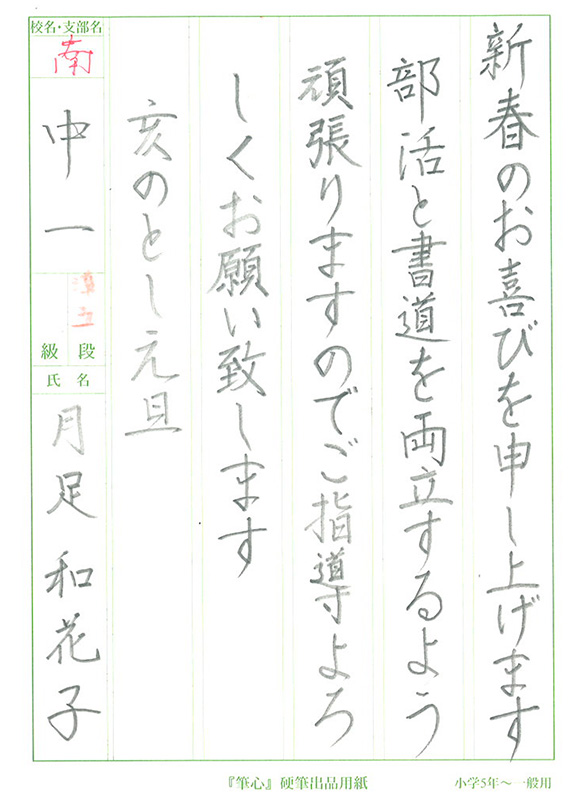 新春のお喜びを申し上げます
部活と書道を両立するよう
頑張りますのでご指導よろ
しくお願い致します
亥のとし元旦
校名・支部名
南
中一
段
級
氏名
月足和花子
『筆心』硬筆出品用紙
小学5年〜一般用